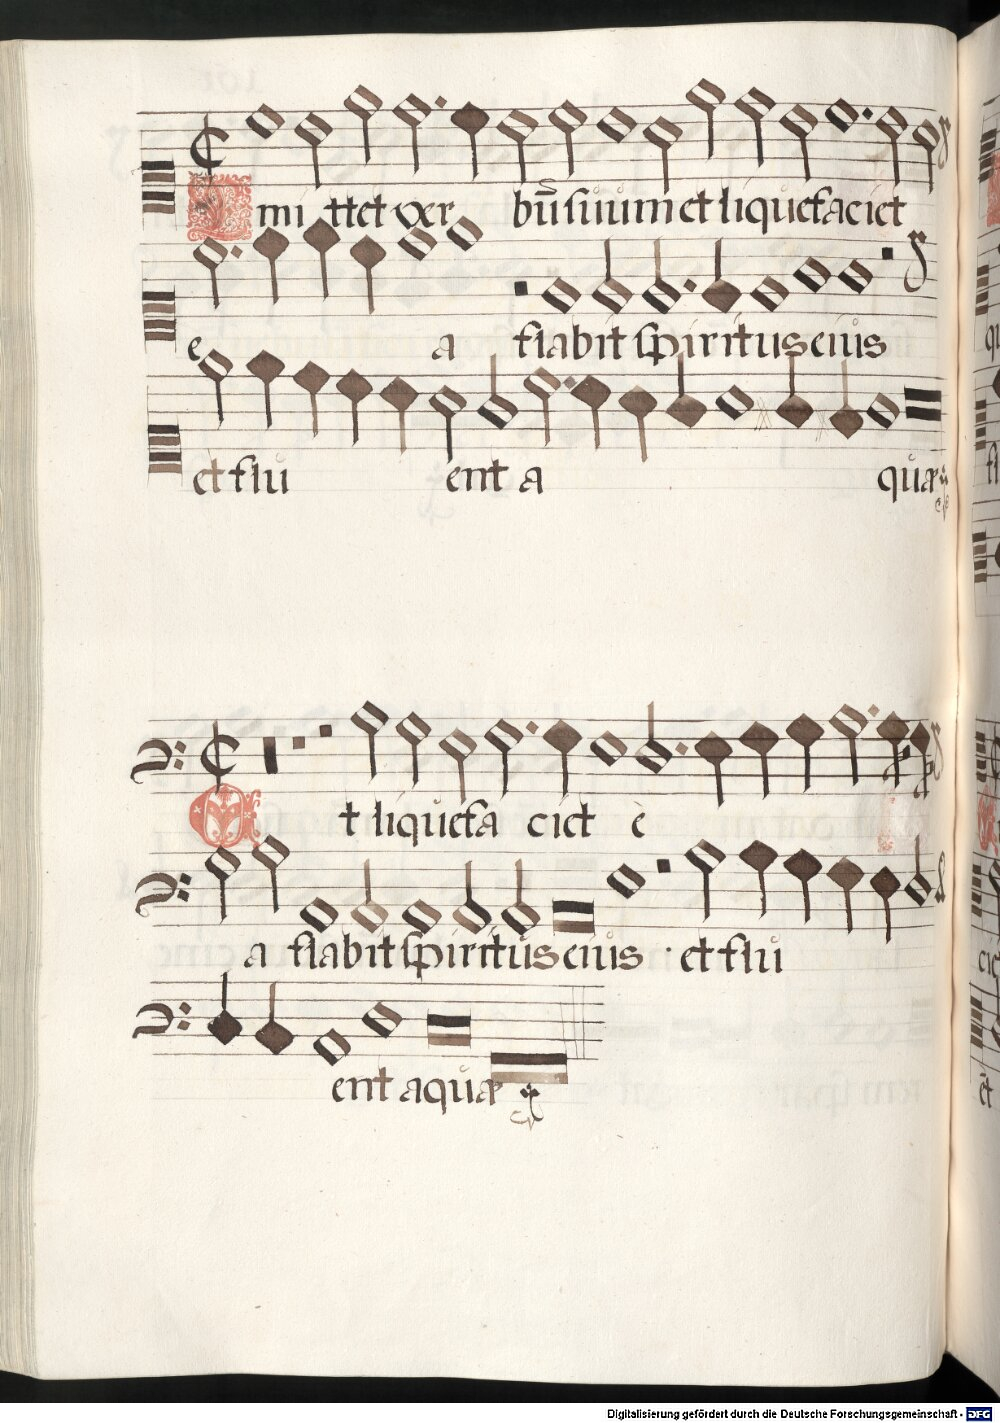 Emittet ver bū suum et liquefaciet
e a flabit spiritus eius
et flu ent a quæ
Et liquefa ciet e
a flabit spiritus eius · et flu
ent aquæ
Digitalisierung gefördert durch die Deutsche Forschungsgemeinschaft - DFG